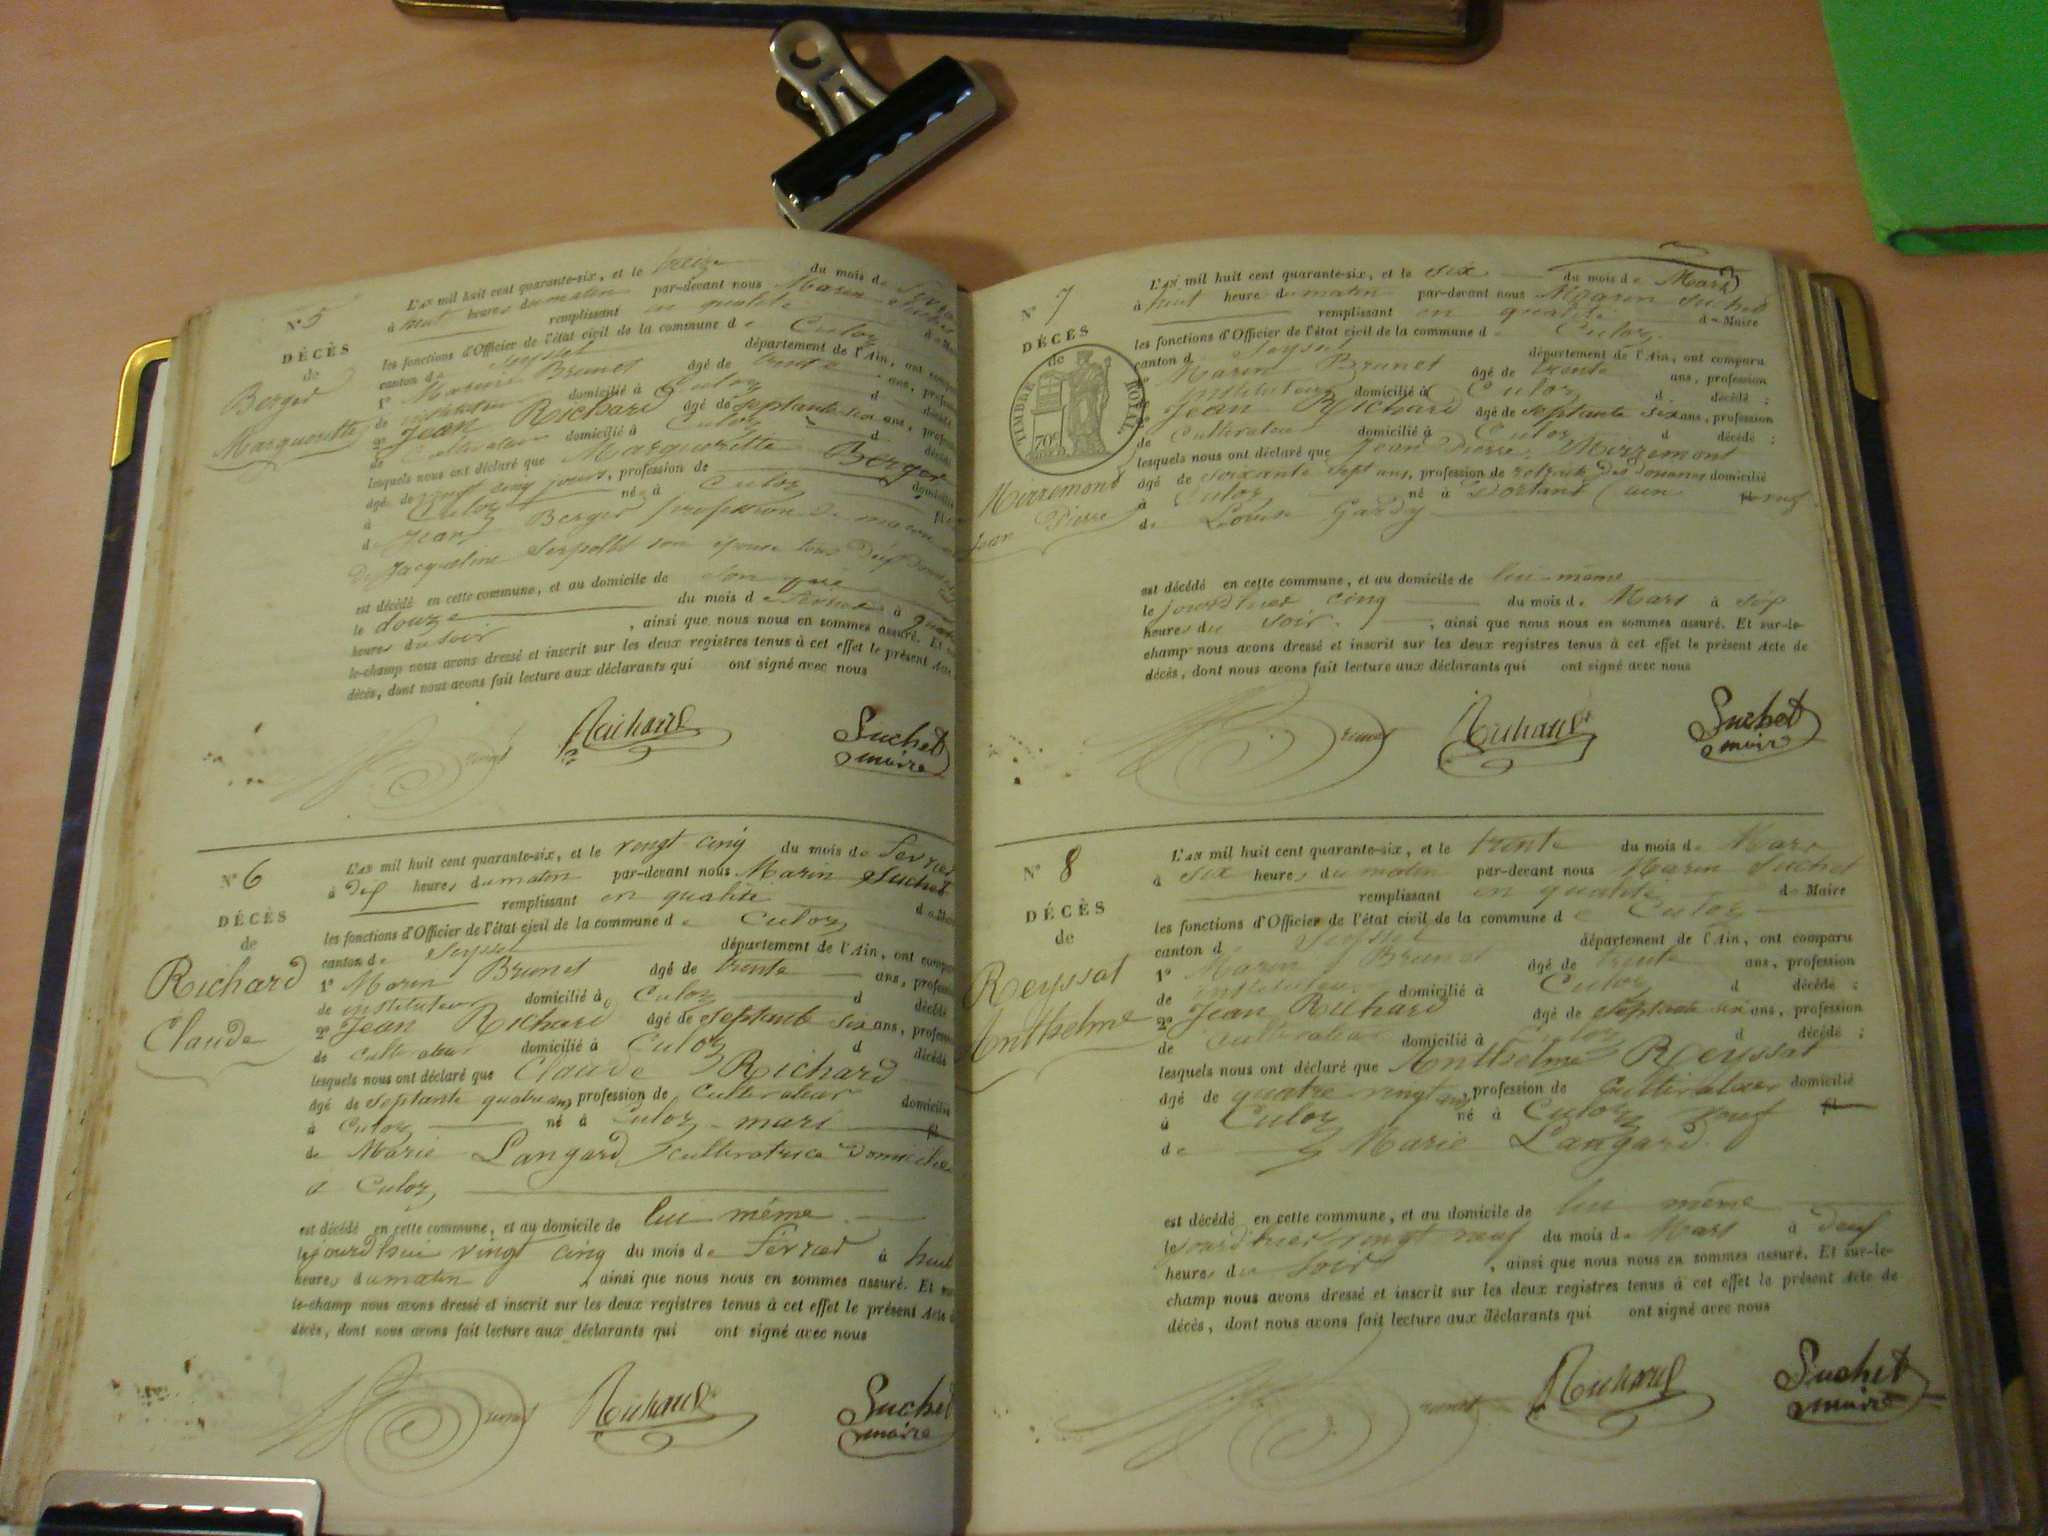 N° 5
DÉCÈS
de
Berger
Margueritte
L'AN mil huit cent quarante-six, et le treize du mois de
à huit heures du matin par-devant nous Marin Suchet
remplissant en qualité de
les fonctions d'Officier de l'état civil de la commune de Culoz
canton de Seyssel département de l'Ain, ont
1° Marin Brunet âgé de trente ans,
de instituteur domicilié à Culoz d
2° Jean Richard âgé de septante six ans,
de Cultivateur domicilié à Culoz d
lesquels nous ont déclaré que Margueritte Berger
âgé de vingt cinq jours, profession de
à Culoz né à Culoz
de Jean Berger profession de
De Jacqueline Serpollet son épouse tous deux
est décédé en cette commune, et au domicile de son père
le douze du mois de février à
heures du soir , ainsi que nous nous en sommes assuré. Et
le-champ nous avons dressé et inscrit sur les deux registres tenus à cet effet le présent Acte
décès, dont nous avons fait lecture aux déclarants qui ont signé avec nous
Brunet Richard Suchet
maire
N° 6
DÉCÈS
de
Richard
Claude
L'AN mil huit cent quarante-six, et le vingt cinq du mois de
à dix heures du matin par-devant nous Marin Suchet
remplissant en qualité
les fonctions d'Officier de l'état civil de la commune de Culoz
canton de Seyssel département de l'Ain, ont
1° Marin Brunet âgé de trente ans,
de instituteur domicilié à Culoz d décédé
2° Jean Richard âgé de septante six ans,
de Cultivateur domicilié à Culoz d décédé
lesquels nous ont déclaré que Claude Richard
âgé de septante quatre ans, profession de Cultivateur domicilié
à Culoz né à Culoz mari
de Marie Langard Cultivatrice domiciliée
à Culoz
est décédé en cette commune, et au domicile de lui même
le jourdhui vingt cinq du mois de février à huit
heures du matin , ainsi que nous nous en sommes assuré. Et
le-champ nous avons dressé et inscrit sur les deux registres tenus à cet effet le présent Acte
décès, dont nous avons fait lecture aux déclarants qui ont signé avec nous
Brunet Richard Suchet
maire
N° 7
DÉCÈS
de
TIMBRE ROYAL
70c
Mirremont
Jean Pierre
L'AN mil huit cent quarante-six, et le six du mois de Mars
à huit heures du matin par-devant nous Marin Suchet
remplissant en qualité de Maire
les fonctions d'Officier de l'état civil de la commune de Culoz
canton d Seyssel département de l'Ain, ont comparu
1° Marin Brunet âgé de trente ans, profession
Instituteur domicilié à Culoz d décédé ;
2° Jean Richard âgé de septante six ans, profession
de Cultivateur domicilié à Culoz d décédé ;
lesquels nous ont déclaré que Jean Pierre Mirremont
âgé de soixante sept ans, profession de retraité des douanes domicilié
à Culoz né à Dortant (ain veuf
de Louise Gardy
est décédé en cette commune, et au domicile de lui-même
le jourdhier cinq du mois de Mars à six
heures du soir. , ainsi que nous nous en sommes assuré. Et sur-le-
champ nous avons dressé et inscrit sur les deux registres tenus à cet effet le présent Acte de
décès, dont nous avons fait lecture aux déclarants qui ont signé avec nous
Brunet Richard Suchet
maire
N° 8
DÉCÈS
de
Reyssat
Anthelme
L'AN mil huit cent quarante-six, et le trente du mois de Mars
à six heures du matin par-devant nous Marin Suchet
remplissant en qualité de Maire
les fonctions d'Officier de l'état civil de la commune de Culoz
canton d Seyssel département de l'Ain, ont comparu
1° Marin Brunet âgé de trente ans, profession
de instituteur domicilié à Culoz d décédé ;
2° Jean Richard âgé de septante six ans, profession
de Cultivateur domicilié à Culoz d décédé ;
lesquels nous ont déclaré que Anthelme Reyssat
âgé de quatre vingt ans, profession de Cultivateur domicilié
à Culoz né à Culoz veuf
de Marie Langard.
est décédé en cette commune, et au domicile de lui même
le jourdhier vingt neuf du mois de Mars à deux
heures du soir , ainsi que nous nous en sommes assuré. Et sur-le-
champ nous avons dressé et inscrit sur les deux registres tenus à cet effet le présent Acte de
décès, dont nous avons fait lecture aux déclarants qui ont signé avec nous
Brunet Richard Suchet
maire